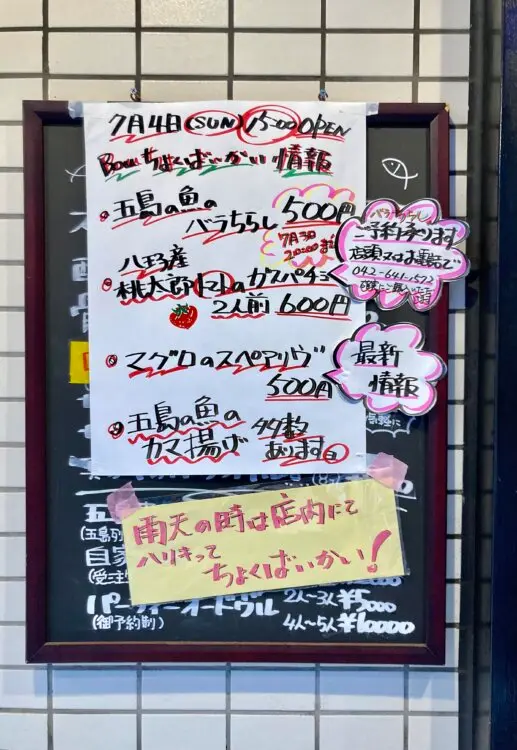 7月4日(SUN) 15:00 OPEN
Bouちょくばいかい情報
五島の魚の
バラちらし 500円
7月3日
20:00まで
八女産
桃太郎トマトのガスパチョ
2人前 600円
マグロのスペアリヴ
500円
五島の魚の
カマ揚げ 多数
あります
バラちらし
ご予約承ります
店頭又はお電話で
092-641-1572
最新
情報
雨天の時は店内にて
ハリキって
ちょくばいかい!
五
(五島列
自家
(受注
パーティーオードヴル 2人〜3人 ¥5000
(御予約制) 4人〜5人 ¥10000